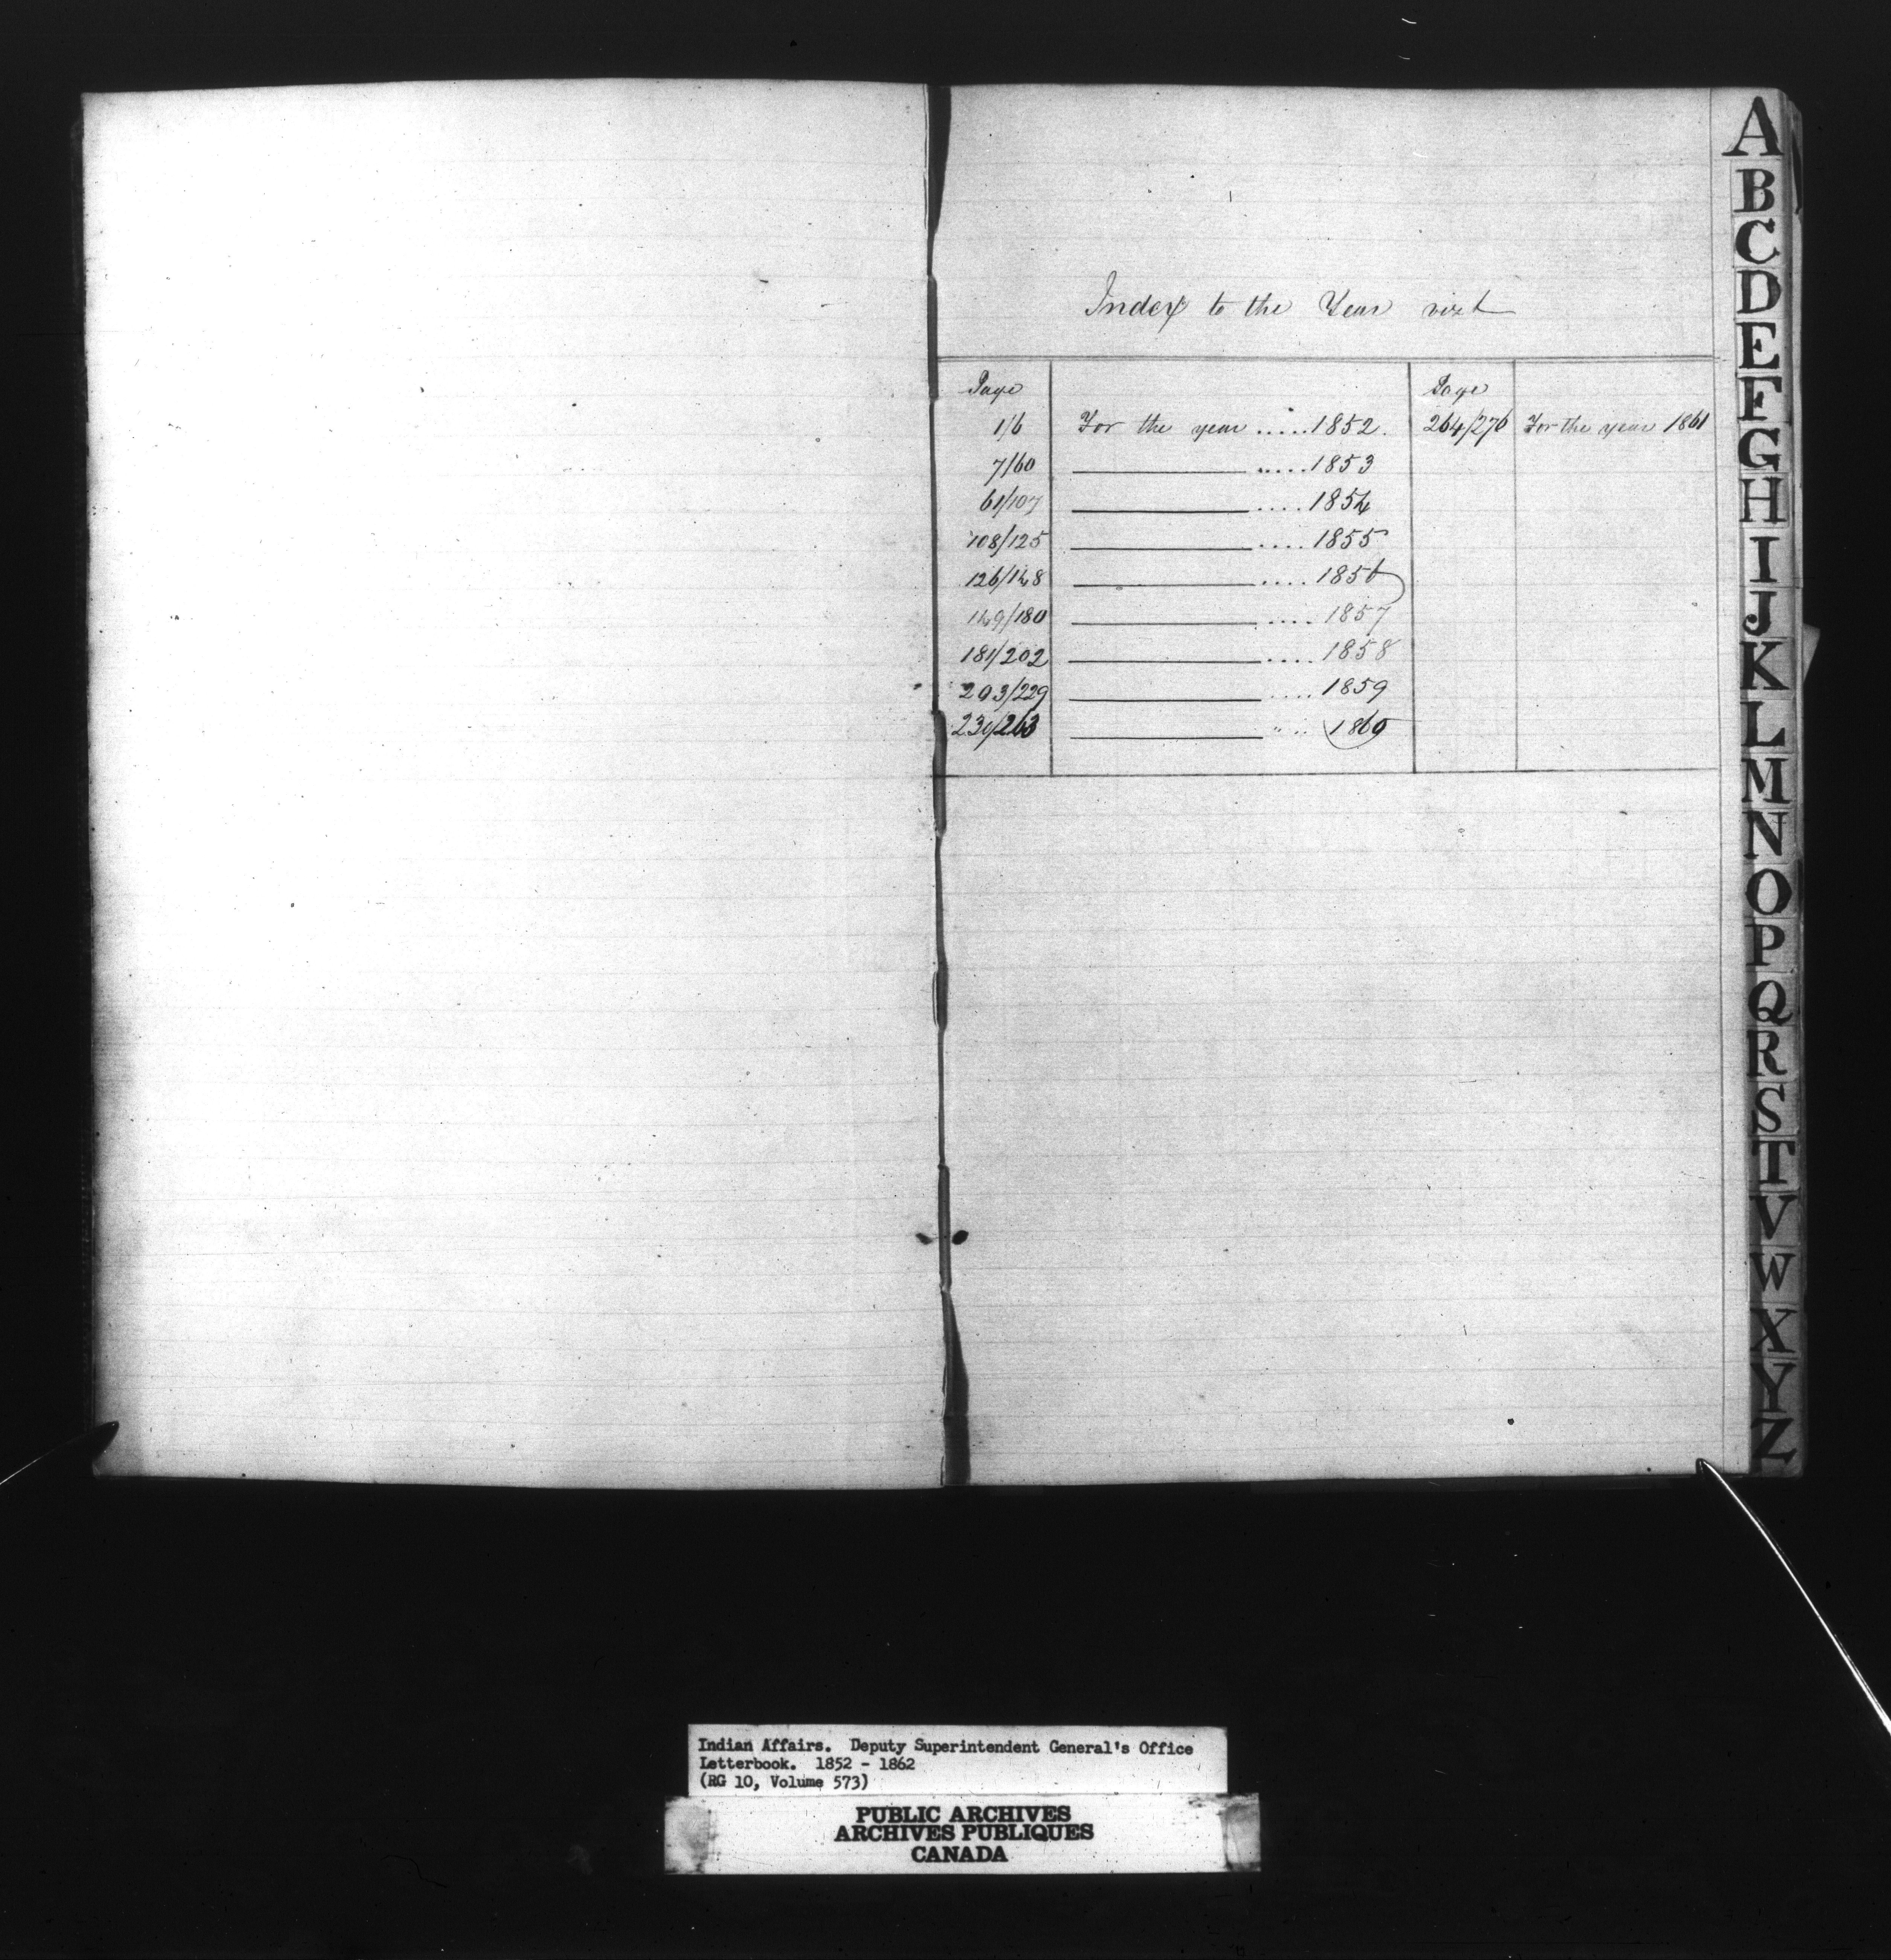 Index to the Year vizt
Page Page
1/6 For the year ..... 1852. 264/276 For the year 1861
7/60 ..... 1853
61/107 .... 1854
108/125 .... 1855
126/148 .... 1856
149/180 .... 1857
181/202 .... 1858
203/229 .... 1859
230/263 .... 1860
A
B
C
D
E
F
G
H
I
J
K
L
M
N
O
P
Q
R
S
T
V
W
X
Y
Z
Indian Affairs. Deputy Superintendent General's Office
Letterbook. 1852 - 1862
(RG 10, Volume 573)
PUBLIC ARCHIVES
ARCHIVES PUBLIQUES
CANADA